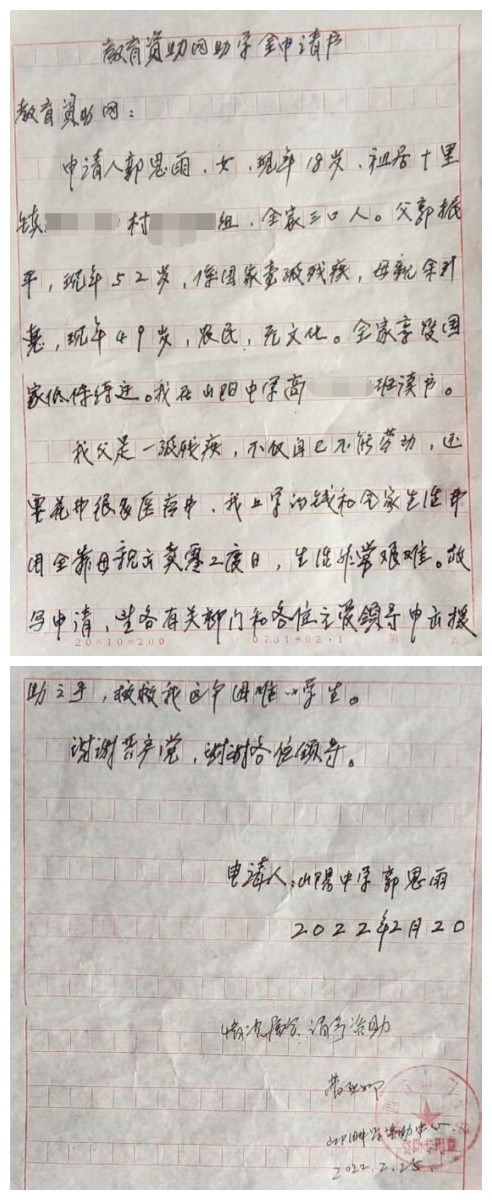 教育资助网助学金申请书
教育资助网：
申请人郭思雨，女，现年18岁，祖居十里
镇 村 组，全家三口人。父郭振
平，现年52岁，系国家壹级残疾，母亲余对
慧，现年49岁，农民，无文化。全家享受国
家低保待遇。我在山阳中学高 班读书。
我父是一级残疾，不仅自已不能劳动，还
要花史很多医药史，我上学的钱和全家生活史
用全靠母亲 卖零工度日，生活非常艰难。故
写申请，望各有关部门和各位主要领导申出援
20×10=200 0731-92·1 第 页
助之手，拯救我这个困难小学生。
谢谢共产党，谢谢各位领导。
申请人：山阳中学 郭思雨
2022年2月20
情况属实，请予资助
山阳中学资助中心
2022.2.25.